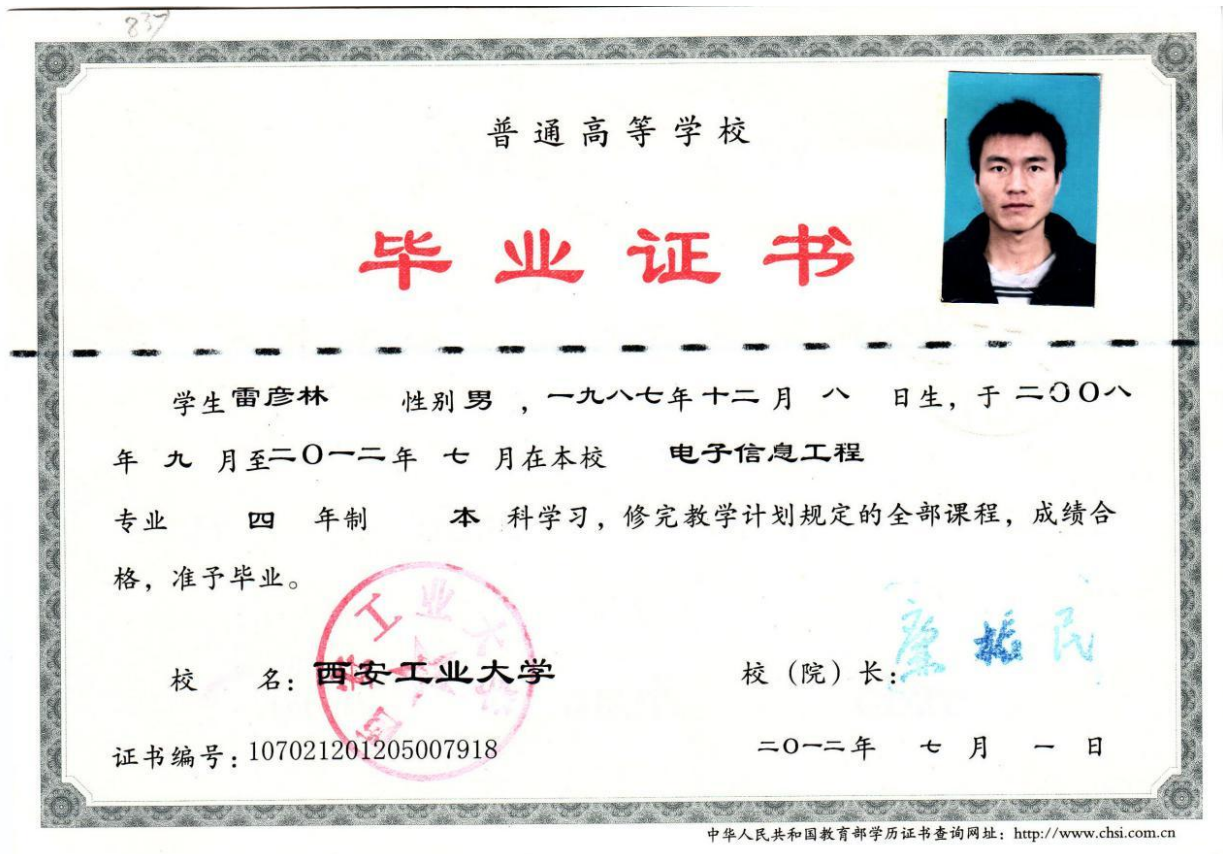 837
普通高等学校
毕业证书
学生雷彦林 性别男，一九八七年十二月八日生，于二〇〇八
年九月至二〇一二年七月在本校 电子信息工程
专业 四 年制 本 科学习，修完教学计划规定的全部课程，成绩合
格，准予毕业。
西安工业大学
校 名：西安工业大学 校（院）长：
证书编号：107021201205007918 二〇一二年 七 月 一 日
中华人民共和国教育部学历证书查询网址：http://www.chsi.com.cn